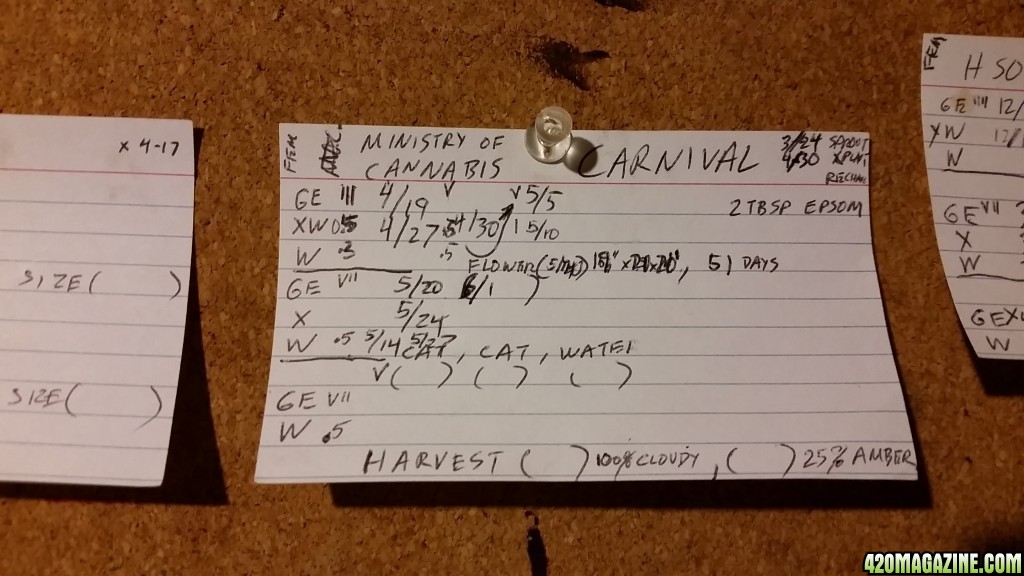 X 4-17
SIZE( )
SIZE( )
FEM
MINISTRY OF
CANNABIS
CARNIVAL
3/24
4/30
GE III 4/19 V V 5/5
2 TBSP EPSOM
XW 4/27 /30 1 5/10
W .3 .5
FLOWER( ) , 51 DAYS
GE VII 5/20 6/1
X 5/24
W .5 5/14 5/27
CAT, CAT, WATE
V( ) ( ) ( )
GE VII
W .5
HARVEST ( ) 100% CLOUDY, ( ) 25% AMBER
FEM
H SO
GE IIII 12/
XW
W
GE VII
X
W
GEX
W
420MAGAZINE.COM